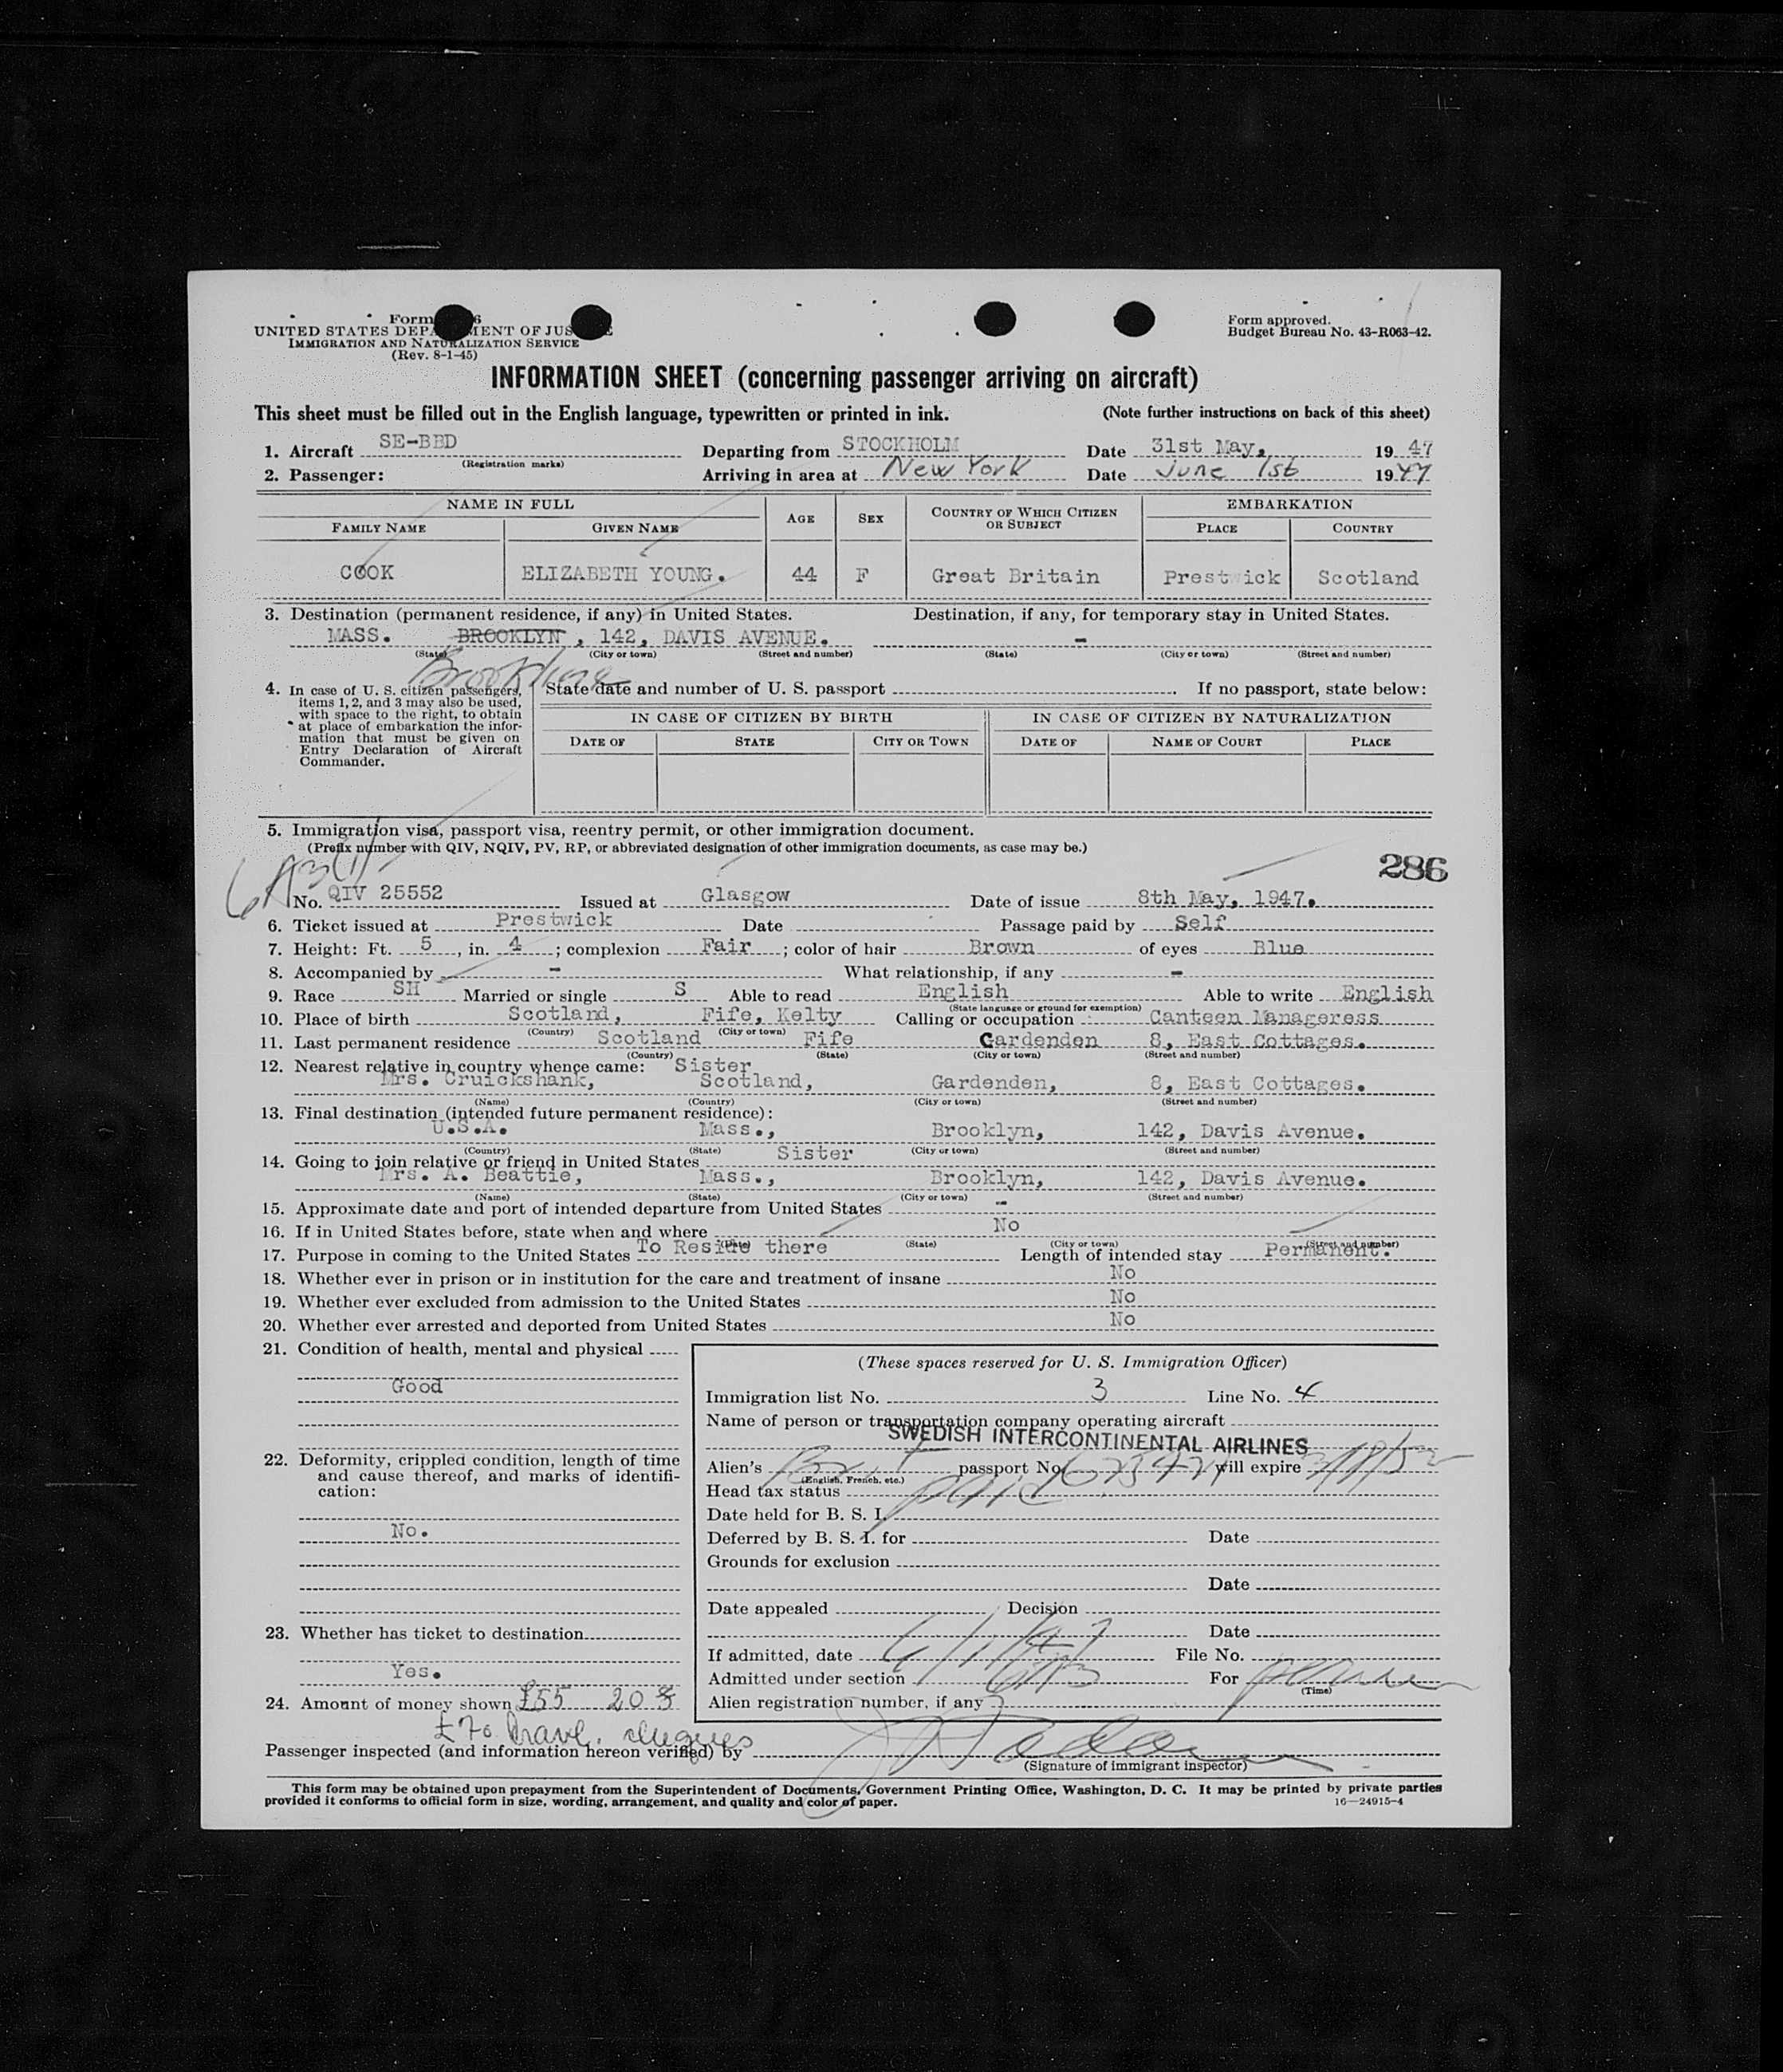 Form 6
UNITED STATES DEPA MENT OF JUS E
IMMIGRATION AND NATURALIZATION SERVICE
(Rev. 8-1-45)
Form approved.
Budget Bureau No. 43-R063-42.
INFORMATION SHEET (concerning passenger arriving on aircraft)
This sheet must be filled out in the English language, typewritten or printed in ink. (Note further instructions on back of this sheet)
1. Aircraft SE-BBD Departing from STOCKHOLM Date 31st May, 19 47
(Registration marks)
2. Passenger: Arriving in area at New York Date June 1st 1947
NAME IN FULL AGE SEX COUNTRY OF WHICH CITIZEN OR SUBJECT EMBARKATION
FAMILY NAME GIVEN NAME PLACE COUNTRY
COOK ELIZABETH YOUNG. 44 F Great Britain Prestwick Scotland
3. Destination (permanent residence, if any) in United States. Destination, if any, for temporary stay in United States.
MASS. BROOKLYN, 142, DAVIS AVENUE. -
(State) (City or town) (Street and number) (State) (City or town) (Street and number)
Brookline
4. In case of U. S. citizen passengers, items 1, 2, and 3 may also be used, with space to the right, to obtain at place of embarkation the information that must be given on Entry Declaration of Aircraft Commander.
State date and number of U. S. passport If no passport, state below:
IN CASE OF CITIZEN BY BIRTH IN CASE OF CITIZEN BY NATURALIZATION
DATE OF STATE CITY OR TOWN DATE OF NAME OF COURT PLACE
5. Immigration visa, passport visa, reentry permit, or other immigration document.
(Prefix number with QIV, NQIV, PV, RP, or abbreviated designation of other immigration documents, as case may be.)
6A3(1)
286
No. QIV 25552 Issued at Glasgow Date of issue 8th May, 1947.
6. Ticket issued at Prestwick Date Passage paid by Self
7. Height: Ft. 5, in. 4; complexion Fair; color of hair Brown of eyes Blue
8. Accompanied by - What relationship, if any -
9. Race SH Married or single S Able to read English Able to write English
(State language or ground for exemption)
10. Place of birth Scotland, Fife, Kelty Calling or occupation Canteen Manageress
(Country) (City or town)
11. Last permanent residence Scotland Fife Gardenden 8, East Cottages.
(Country) (State) (City or town) (Street and number)
12. Nearest relative in country whence came: Sister
Mrs. Cruickshank, Scotland, Gardenden, 8, East Cottages.
(Name) (Country) (City or town) (Street and number)
13. Final destination (intended future permanent residence):
U.S.A. Mass., Brooklyn, 142, Davis Avenue.
(Country) (State) (City or town) (Street and number)
14. Going to join relative or friend in United States Sister
Mrs. A. Beattie, Mass., Brooklyn, 142, Davis Avenue.
(Name) (State) (City or town) (Street and number)
15. Approximate date and port of intended departure from United States -
16. If in United States before, state when and where No
(Date) (State) (City or town) (Street and number)
17. Purpose in coming to the United States To Reside there Length of intended stay Permanent.
18. Whether ever in prison or in institution for the care and treatment of insane No
19. Whether ever excluded from admission to the United States No
20. Whether ever arrested and deported from United States No
21. Condition of health, mental and physical
Good
22. Deformity, crippled condition, length of time and cause thereof, and marks of identification:
No.
23. Whether has ticket to destination
Yes.
24. Amount of money shown £55 20 $
£70 travl. cheques
(These spaces reserved for U. S. Immigration Officer)
Immigration list No. 3 Line No. 4
Name of person or transportation company operating aircraft
SWEDISH INTERCONTINENTAL AIRLINES
Alien's Brit passport No. will expire
(English, French, etc.)
Head tax status paid
Date held for B. S. I.
Deferred by B. S. I. for Date
Grounds for exclusion
Date
Date appealed Decision
Date
If admitted, date 6/1/47 File No.
Admitted under section 6A3 For
(Time)
Alien registration number, if any
Passenger inspected (and information hereon verified) by
(Signature of immigrant inspector)
This form may be obtained upon prepayment from the Superintendent of Documents, Government Printing Office, Washington, D. C. It may be printed by private parties
provided it conforms to official form in size, wording, arrangement, and quality and color of paper. 16—24915-4